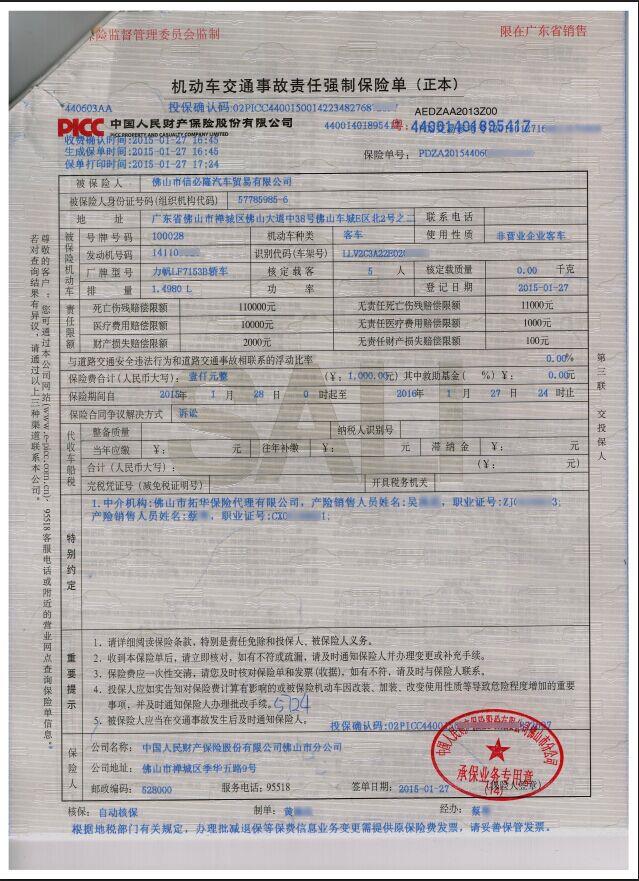 保险监督管理委员会监制
限在广东省销售
机动车交通事故责任强制保险单（正本）
440603AA
投保确认码:02PICC440015001422348276
AEDZAA2013Z00
PICC 中国人民财产保险股份有限公司
PICC PROPERTY AND CASUALTY COMPANY LIMITED
44001401895417
粤: 44001401895417
收费确认时间:2015-01-27 16:45
生成保单时间:2015-01-27 16:45
保单打印时间:2015-01-27 17:24
保险单号: PDZA20154406
被保险人 佛山市信必隆汽车贸易有限公司
被保险人身份证号码(组织机构代码) 57785985-6
地址 广东省佛山市禅城区佛山大道中38号佛山车城E区北2号之二 联系电话
被保险机动车
号牌号码 100028 机动车种类 客车 使用性质 非营业企业客车
发动机号码 14110 识别代码(车架号) LLV2C3A22E02
厂牌型号 力帆LF7153B轿车 核定载客 5 人 核定载质量 0.00 千克
排量 1.4980 L 功率 登记日期 2015-01-27
责任限额
死亡伤残赔偿限额 110000元 无责任死亡伤残赔偿限额 11000元
医疗费用赔偿限额 10000元 无责任医疗费用赔偿限额 1000元
财产损失赔偿限额 2000元 无责任财产损失赔偿限额 100元
与道路交通安全违法行为和道路交通事故相联系的浮动比率 0.00%
保险费合计(人民币大写): 壹仟元整 (￥: 1,000.00元) 其中救助基金( %)￥: 0.00元
保险期间自 2015年 1 月 28 日 0 时起至 2016年 1 月 27 日 24 时止
保险合同争议解决方式 诉讼
代收车船税
整备质量 纳税人识别号
当年应缴 ￥: 元 往年补缴 ￥: 元 滞纳金 ￥: 元
合计(人民币大写): (￥: 元)
完税凭证号(减免税证明号) 开具税务机关
SALI
特别约定
1.中介机构:佛山市拓华保险代理有限公司,产险销售人员姓名:吴 ,职业证号:ZJ0 3;
产险销售人员姓名:蔡 ,职业证号:CX0 1;
重要提示
1. 请详细阅读保险条款，特别是责任免除和投保人、被保险人义务。
2. 收到本保险单后，请立即核对，如有不符或疏漏，请及时通知保险人并办理变更或补充手续。
3. 保险费应一次性交清，请您及时核对保险单和发票(收据)，如有不符，请及时与保险人联系。
4. 投保人应如实告知对保险费计算有影响的或被保险机动车因改装、加装、改变使用性质等导致危险程度增加的重要
事项，并及时通知保险人办理批改手续。
5. 被保险人应当在交通事故发生后及时通知保险人。
投保确认码:02PICC4400
保险人
公司名称: 中国人民财产保险股份有限公司佛山市分公司
公司地址: 佛山市禅城区季华五路9号
邮政编码: 528000 服务电话: 95518 签单日期: 2015-01-27 (保险人签章)
承保业务专用章
(14)
核保: 自动核保 制单: 黄 经办: 蔡
根据地税部门有关规定，办理批减退保等保费信息业务变更需提供原保险费发票，请妥善保管发票。
第三联 交投保人
尊敬的客户：您可通过本公司网站(www.e-picc.com.cn)、95518客服电话或附近的营业网点查询保险单信息。
若对查询结果有异议，请通过以上三种渠道联系本公司。